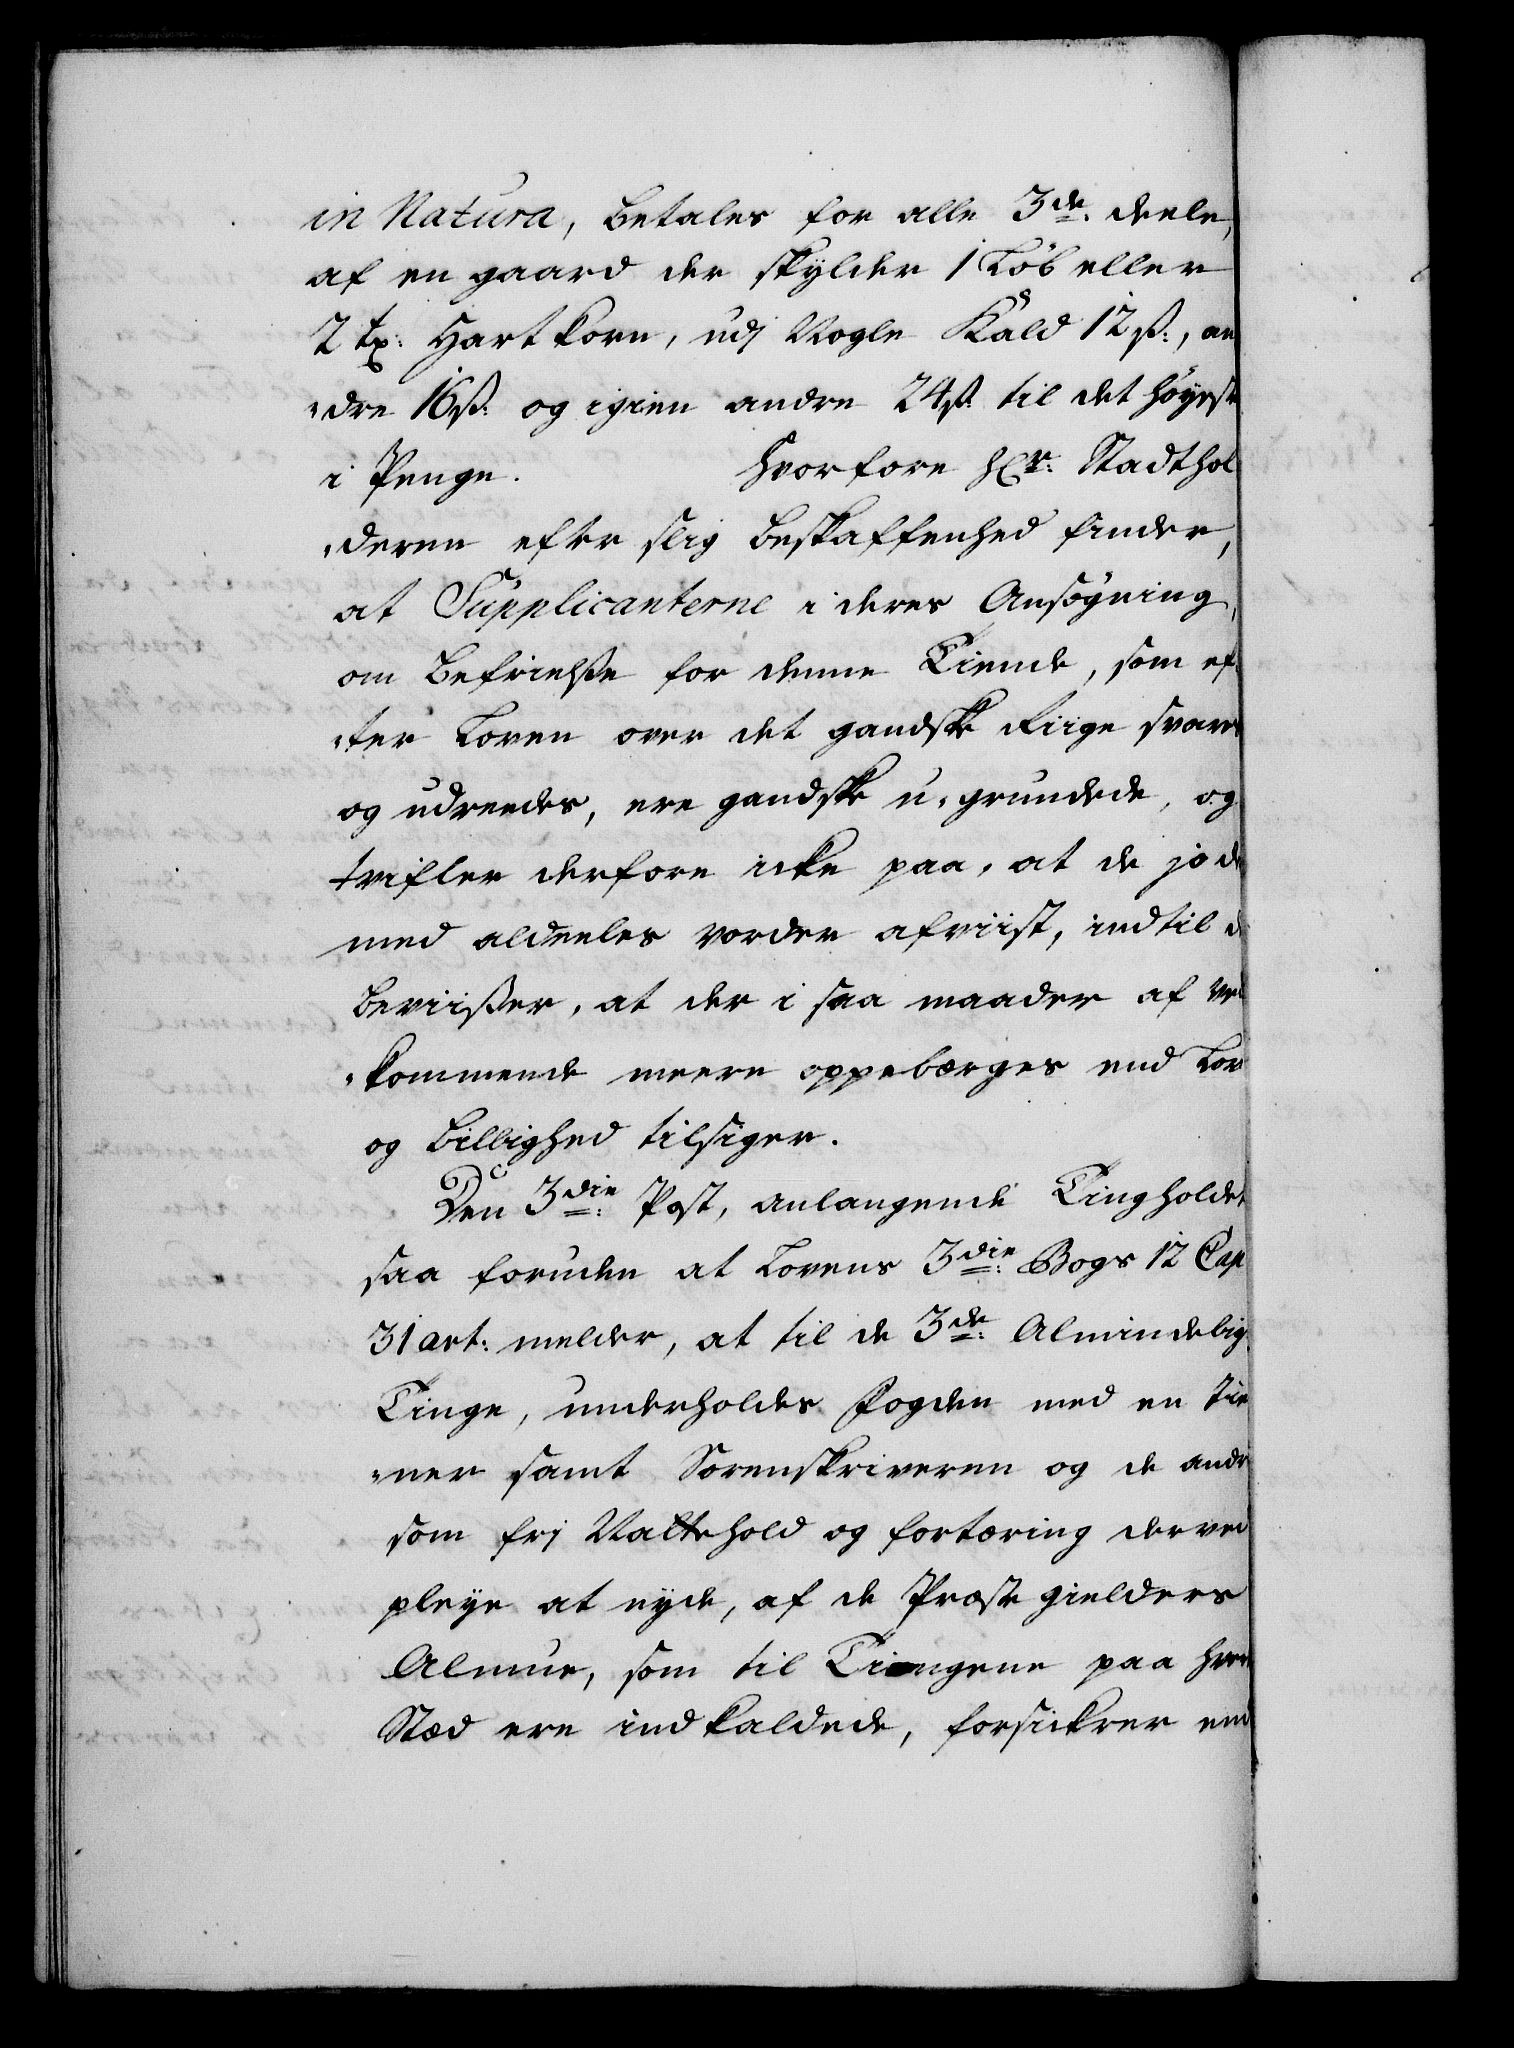 in Natura, betales for alle 3de: deele,
af en gaard der skylder 1 Løb eller
2 tp: Hartkorn, udj Nogle Kald 12 ß:, an
"dre 16 ß: og igien andre 24 ß: til det høyeste
i Penge. Hvorfore Hr: Stadthol
"deren efter slig beskaffenhed finder,
at Supplicanterne i deres Ansøgning,
om befrielsse for denne Tiende, som ef
"ter Loven over det gandske Riige svares
og udreedes, ere gandske u-grundede, og
tvifler derfore icke paa, at de jo der
med aldeeles vorder afviist, indtil de
beviisser, at der i saa maader af Ved
"kommende meere oppebærges end Lov
og billighed tilsiger.
Den 3die: Post, anlangende Tingholdet
saa foruden at Lovens 3die: Bogs 12 Cap
31 art: melder, at til de 3de: Almindelig
Tinge, underholdes Fogden med en Tie
"ner samt Sorenskriveren og de andre
som frj Natthold og fortæring derved
pleye at nyde, af de Præste gielders
Almue, som til Tingene paa hver
Stæd ere indkaldede, forsickrer end